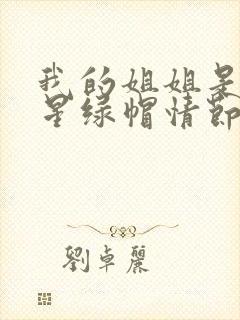 我的姐姐是
星绿帽情节
劉卓麗